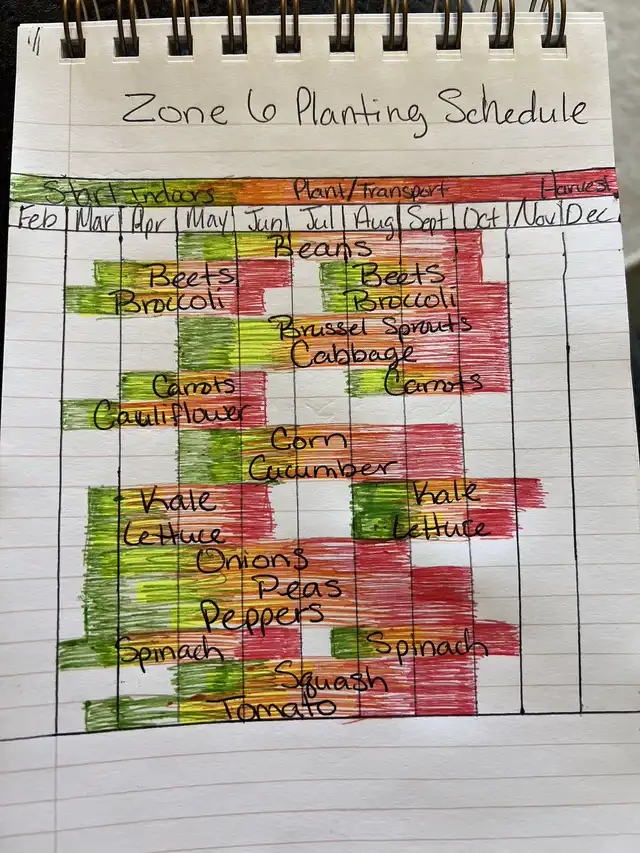 1/1
Zone 6 Planting Schedule
Start indoors Plant/Transport Harvest
Feb Mar Apr May Jun Jul Aug Sept Oct Nov Dec
Beans
Beets Beets
Broccoli Broccoli
Brussel Sprouts
Cabbage
Carrots Carrots
Cauliflower
Corn
Cucumber
Kale Kale
Lettuce Lettuce
Onions
Peas
Peppers
Spinach Spinach
Squash
Tomato